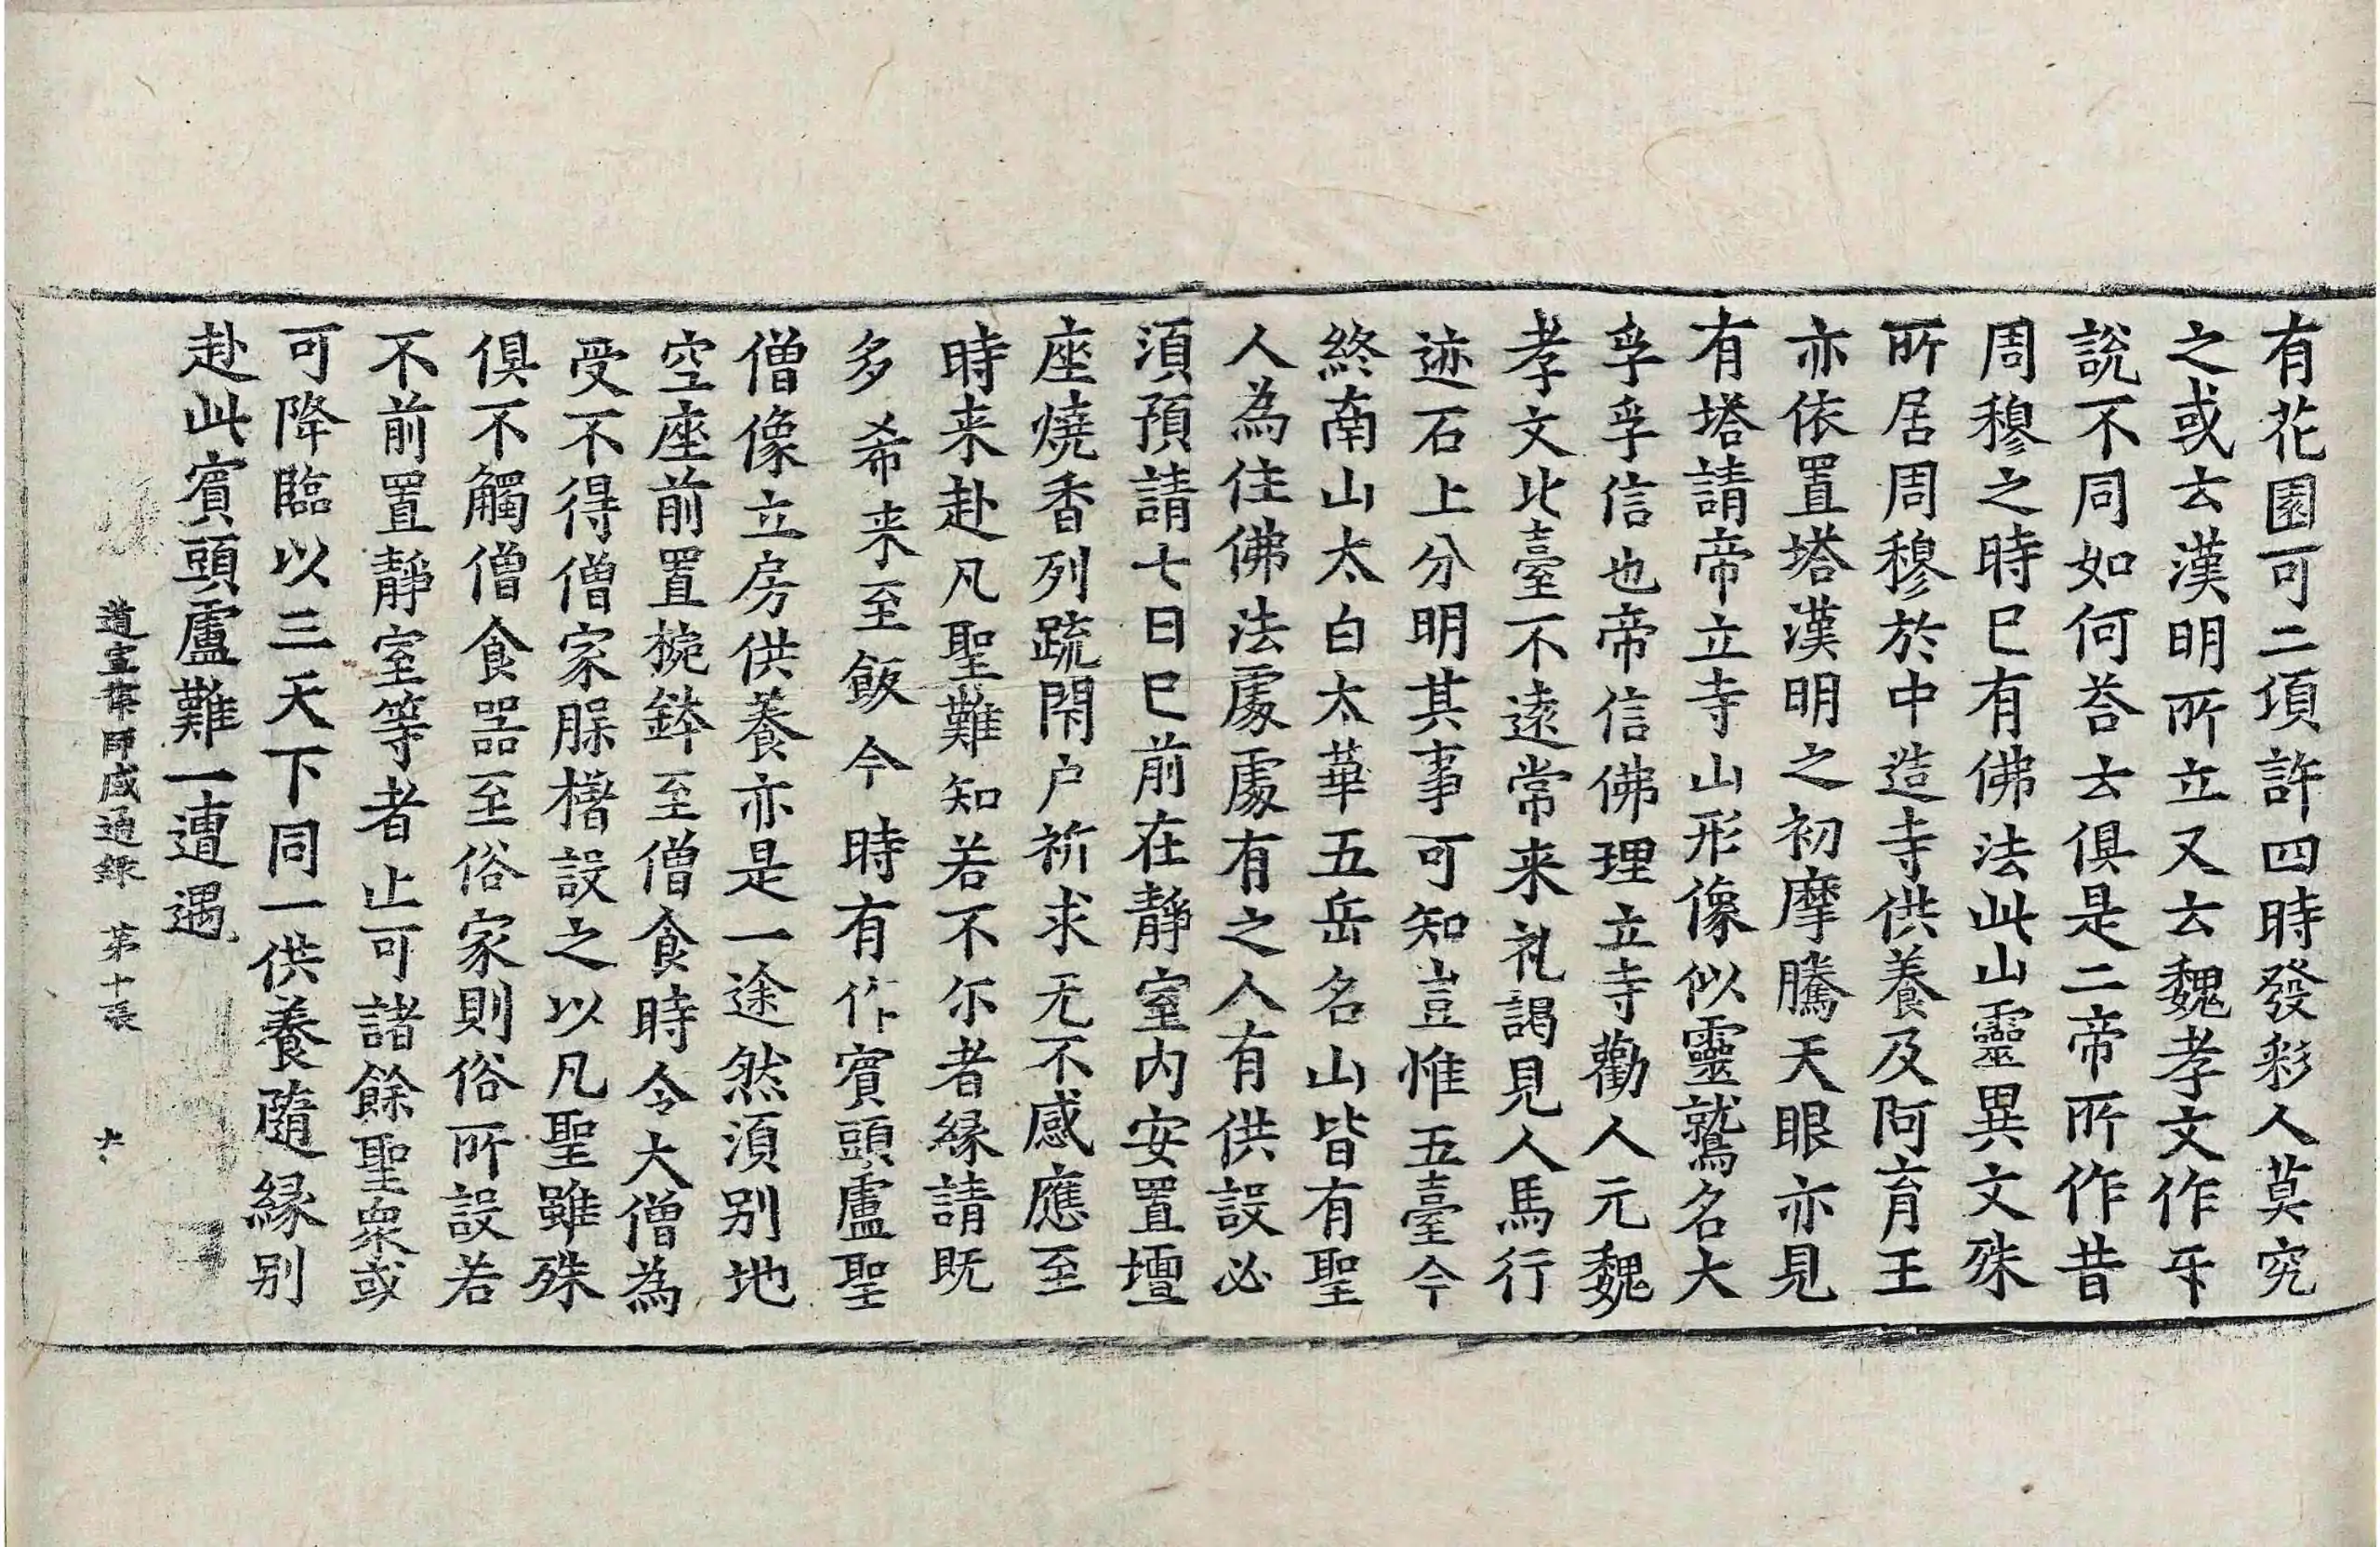 有花園可二項許四時發彩人莫究
之或云漢明所立又云魏孝文作𠀋
說不同如何荅云俱是二帝所作昔
周穆之時巳有佛法此山靈異文殊
所居周穆於中造寺供養及阿育王
亦依置塔漢明之初摩騰天眼亦見
有塔請帝立寺山形像似靈鷲名大
孚孚信也帝信佛理立寺勸人元魏
孝文北臺不遠常来礼謁見人馬行
迹石上分明其事可知豈惟五臺今
終南山太白太華五岳名山皆有聖
人為住佛法處處有之人有供設必
湏預請七日巳前在靜室内安置壇
座燒香列䟽閇户祈求无不感應至
時来赴凡聖難知若不尒者縁請既
多希来至飯今時有作賔頭盧聖
僧像立房供養亦是一途然湏别地
空座前置捥鉢至僧食時令大僧為
受不得僧家脲槽設之以凡聖雖殊
俱不觸僧食器至俗家則俗所設若
不前置靜室等者止可諸餘聖衆或
可降臨以三天下同一供養隨縁别
赴此賔頭盧難一遭遇
道宣律師感通録 第十張 大